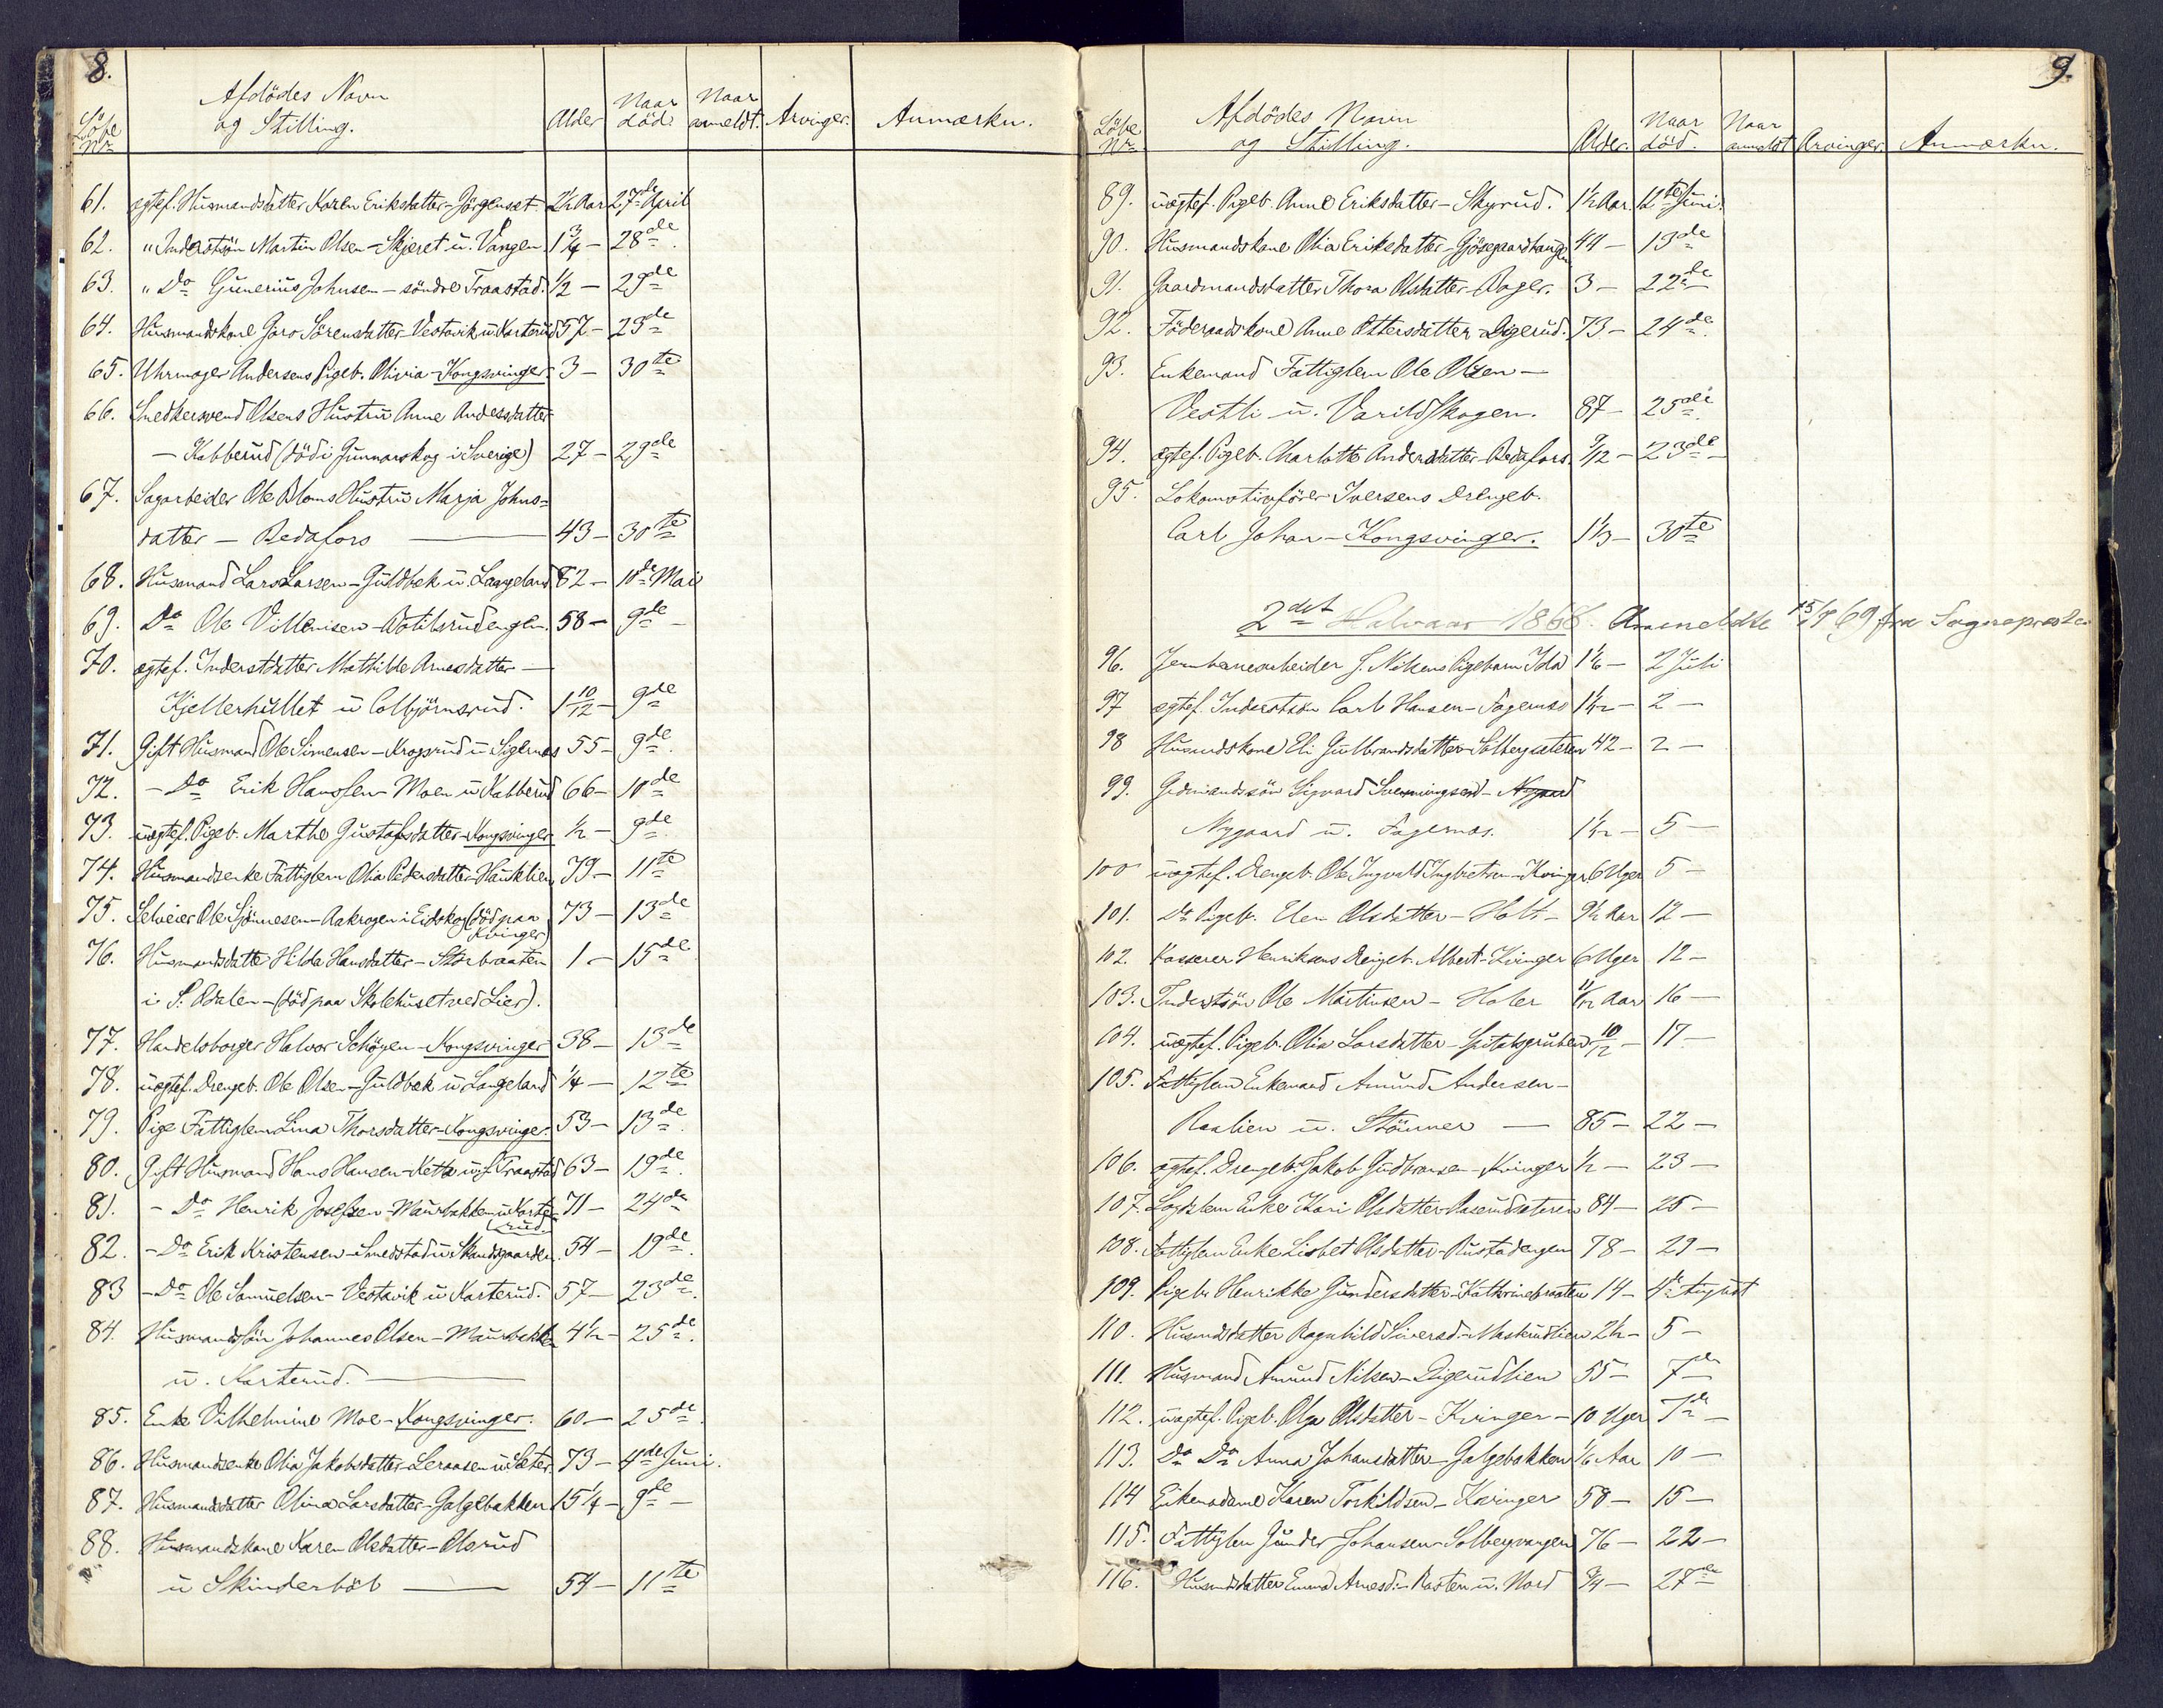 8.
Löbe Nr Afdödes Navn og Stilling. Alder Naar död. Naar anmeldt. Arvinger. Anmærkn.
61. ægtef. Husmandsdatter Karen Eriksdatter - Jörgenset 2½ Aar 27de April
62. " Inderstsön Martin Olsen - Skjeret u. Vangen 1¾ - 28de
63. " Do Gunerius Johnsen - söndre Traastad. ½ - 29de
64. Husmandskone Goro Sörensdatter Vestavik u Karterud 57 - 23de
65. Uhrmager Andersens Pigeb. Olivia - Kongsvinger. 3 - 30te
66. Snedkersvend Olsens Hustru Anne Andersdatter
- Kabberud (död i Gunnarskog i Sverige) 27 - 29de
67. Sagarbeider Ole Bloms Hustru Marja Johns=
datter - Bedafors 43 - 30te
68. Husmand Lars Larsen - Guldbek u. Langeland 82 - 10de Mai
69. Do Ole Villumsen - Botilsrudengen. 58 - 9de -
70. ægtef. Inderstdatter Mathilde Arnesdatter -
Kjellerhullet u Colbjörnsrud. 1 10/12 - 9de
71. Gift Husmand Ole Simensen - Krogsrud u Sigernes 55 - 9de
72. - Do Erik Hanssen - Moen u Kabberud 66 - 10de
73. uægtef. Pigeb. Marthe Gustafsdatter - Kongsvinger ½ - 9de
74. Husmandsenke Fattiglem Olia Pedersdatter - Hauklien 79 - 11te
75. Selveier Ole Sjönnesen - Aakrogen i Eidskog (död paa Kvinger) 73 - 13de
76. Husmandsdatter Hilda Hansdatter - Storbraaten 1 - 15de
i S. Odalen - (död paa Skolehuset ved Lier).
77. Handelsborger Halvor Schöyen - Kongsvinger 38 - 13de
78. uægtef. Drengeb. Ole Olsen - Guldbek u Langeland ¼ - 12te
79. Pige Fattiglem Lina Thorsdatter - Kongsvinger. 53 - 13de
80. Gift Husmand Hans Hansen - Ketta u. Traastad 63 - 19de
81. - Do Henrik Josefsen - Maurbakken u Karterud 71 - 24de
82. - Do Erik Kristensen - Smedstad u Skansgaarden. 54 - 19de
83 - Do Ole Samuelsen - Vestavik u Karterud. 57 - 23de
84. Husmandssön Johannes Olsen - Maurbakken 4½ - 25de
u. Karterud.
85. Enke Vilhelmine Moe - Kongsvinger. 60 - 25de
86. Husmandsenke Olia Jakobsdatter - Leraasen u Sæter. 73 - 4de Juni.
87. Husmandsdatter Olina Larsdatter - Galgebakken 15¼ - 9de -
88. Husmandskone Karen Olsdatter - Olsrud
u Skinderböl 54 - 11te
9.
Löbe Nr. Afdödes Navn og Stilling. Alder. Naar död. Naar anmeldt Arvinger Anmærkn.
89. uægtef. Pigeb. Anne Eriksdatter - Skyrud. 1½ Aar. 12te Juni.
90. Husmandskone Olia Eriksdatter - Gjösegaardhaugen 44 - 13de
91. Gaardmandsdatter Thora Olsdatter - Roger. 3 - 22de
92. Föderaadskone Anne Ottersdatter - Digerud. 73 - 24de
93. Enkemand Fattiglem Ole Olsen -
Vestli u. Varildskogen. 87 - 25de
94. ægtef. Pigeb. Charlotte Andersdatter - Bedafors. 9/12 - 23de -
95. Lokomotivförer Iversens Drengeb.
Carl Johan - Kongsvinger. 1⅓ - 30te
2det Halvaar 1868. Anmeldte 15/1 69 fra Sognepresten
96. Jernbanearbeider J. Nilsens Pigebarn Ida 1⅙ - 2 Juli
97 ægtef. Inderstsön Carl Hansen - Fagernes 1½ - 2 -
98 Husmdskone Eli Gulbrandsdatter - Solbergsæteren 42 - 2 -
99. Gdmandssön Sigvard Svenningsen - Nygaard
Nygaard u. Fagernes. 1½ - 5 -
100 uægtef. Drengeb. Ole Ingvald Ingbretsen - Kvinger 6 Uger 5 -
101. Do Pigeb. Elen Olsdatter - Holt - 9½ Aar 12 -
102. Kasserer Henriksens Drengeb. Albert - Kvinger 6 Uger 12 -
103. Inderstsön Ole Martinsen - Holer 11/12 Aar 16 -
104. uægtef. Pigeb. Olia Larsdatter - Spitalsgruben 10/12 - 17 -
105. Fattiglem Enkemand Amund Andersen -
Raalien u. Stömner - 85 - 22 -
106. ægtef. Drengeb. Jakob Gudbransen - Kvinger ½ - 23 -
107. Lægdslem Enke Kari Olsdatter - Raserudsæteren 84 - 25 -
108. Fattiglem Enke Lisbet Olsdatter - Rustadengen 78 - 29 -
109. Pigeb. Henrikke Gundersdatter - Kathrinebraaten 14 - 4de August
110. Husmdsdatter Ragnhild Siversd. - Maskrudlien 2½ - 5 -
111. Husmand Amund Nilsen - Digerudlien 55 - 7de
112. uægtef. Pigeb. Olga Olsdatter - Kvinger - 10 Uger 7de -
113. Do Do Anna Johansdatter - Galgebakken ⅙ Aar 10 -
114 Enkemadame Karen Torkildsen - Kvinger 58 - 15 -
115. Fattiglem Gunder Johansen - Solbergvangen 76 - 22 -
116. Husmdsdatter Emma Arnesd. - Raaten u. Nord ¾ - 27de